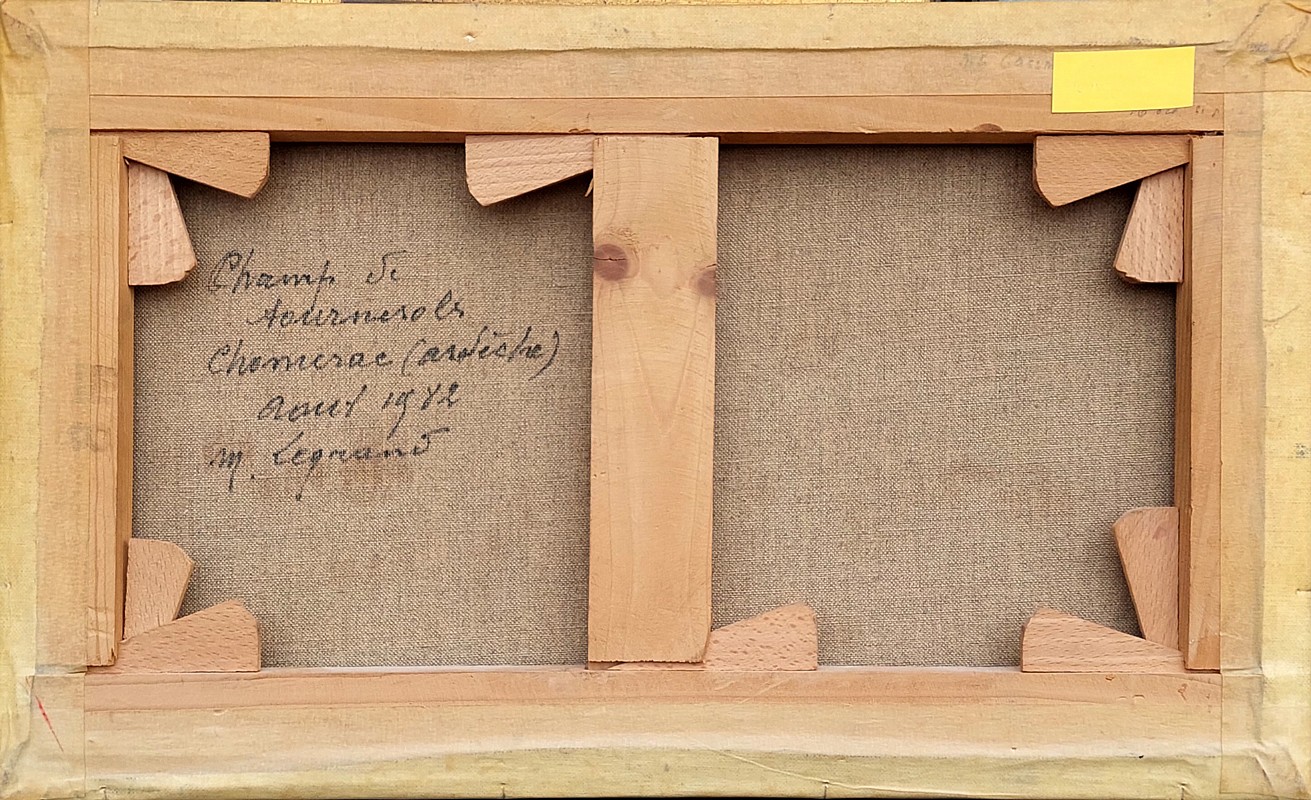 Champ de
tournesols
Chomerac (ardèche)
aout 1982
M. Legrand